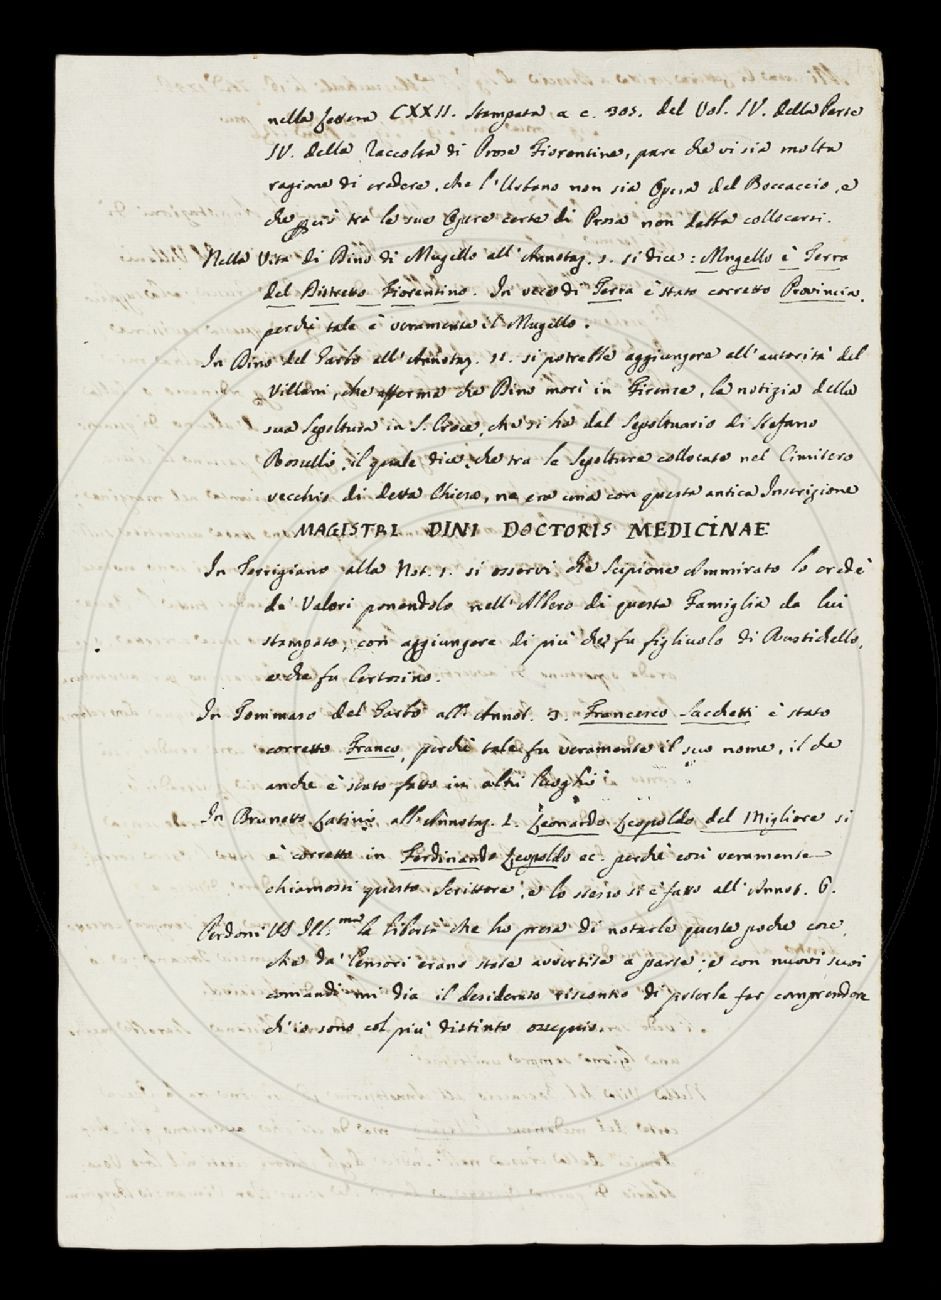 nella Lettera CXXII. stampata a c. 305. del Vol. IV. della Parte
IV. della Raccolta di Prose Fiorentine, pare che vi sia molta
ragione di credere, che l'Urbano non sia Opera del Boccaccio, e
che perciò tra le sue Opere certe di Prosa non debba collocarsi.
Nella Vita di Dino di Mugello all'Annotaz. 1. si dice: Mugello è Terra
del Distretto Fiorentino. In vece di Terra è stato corretto Provincia,
perchè tale è veramente il Mugello.
In Dino del Garbo all'Annotaz. 11. si potrebbe aggiungere all'autorità del
Villani, che afferma che Dino morì in Firenze, la notizia della
sua Sepoltura in S. Croce, che si ha dal Sepoltuario di Stefano
Rosselli, il quale dice, che tra le Sepolture collocate nel Cimitero
vecchio di detta Chiesa, ne era una con questa antica Inscrizione
MAGISTRI DINI DOCTORIS MEDICINAE
In Torrigiano alla Not. 1. si osservi che Scipione Ammirato lo crede
de' Valori ponendolo nell'Albero di questa Famiglia da lui
stampato, con aggiungere di più che fu figliuolo di Rustichello,
e che fu Certosino.
In Tommaso del Garbo all'Annot. 3. Francesco Sacchetti è stato
corretto Franco, perchè tale fu veramente il suo nome, il che
anche è stato fatto in altri luoghi
In Brunetto Latini all'Annotaz. 2. Leonardo Leopoldo del Migliore si
è corretto in Ferdinando Leopoldo ec. perchè così veramente
chiamossi questo Scrittore, e lo stesso si è fatto all'Annot. 6.
Perdoni VS Ill.ma la libertà che ho presa di notarle queste poche cose,
che da' Censori erano state avvertite a parte; e con nuovi suoi
comandi mi dia il desiderato riscontro di poterle far comprendere
ch'io sono col più distinto ossequio.